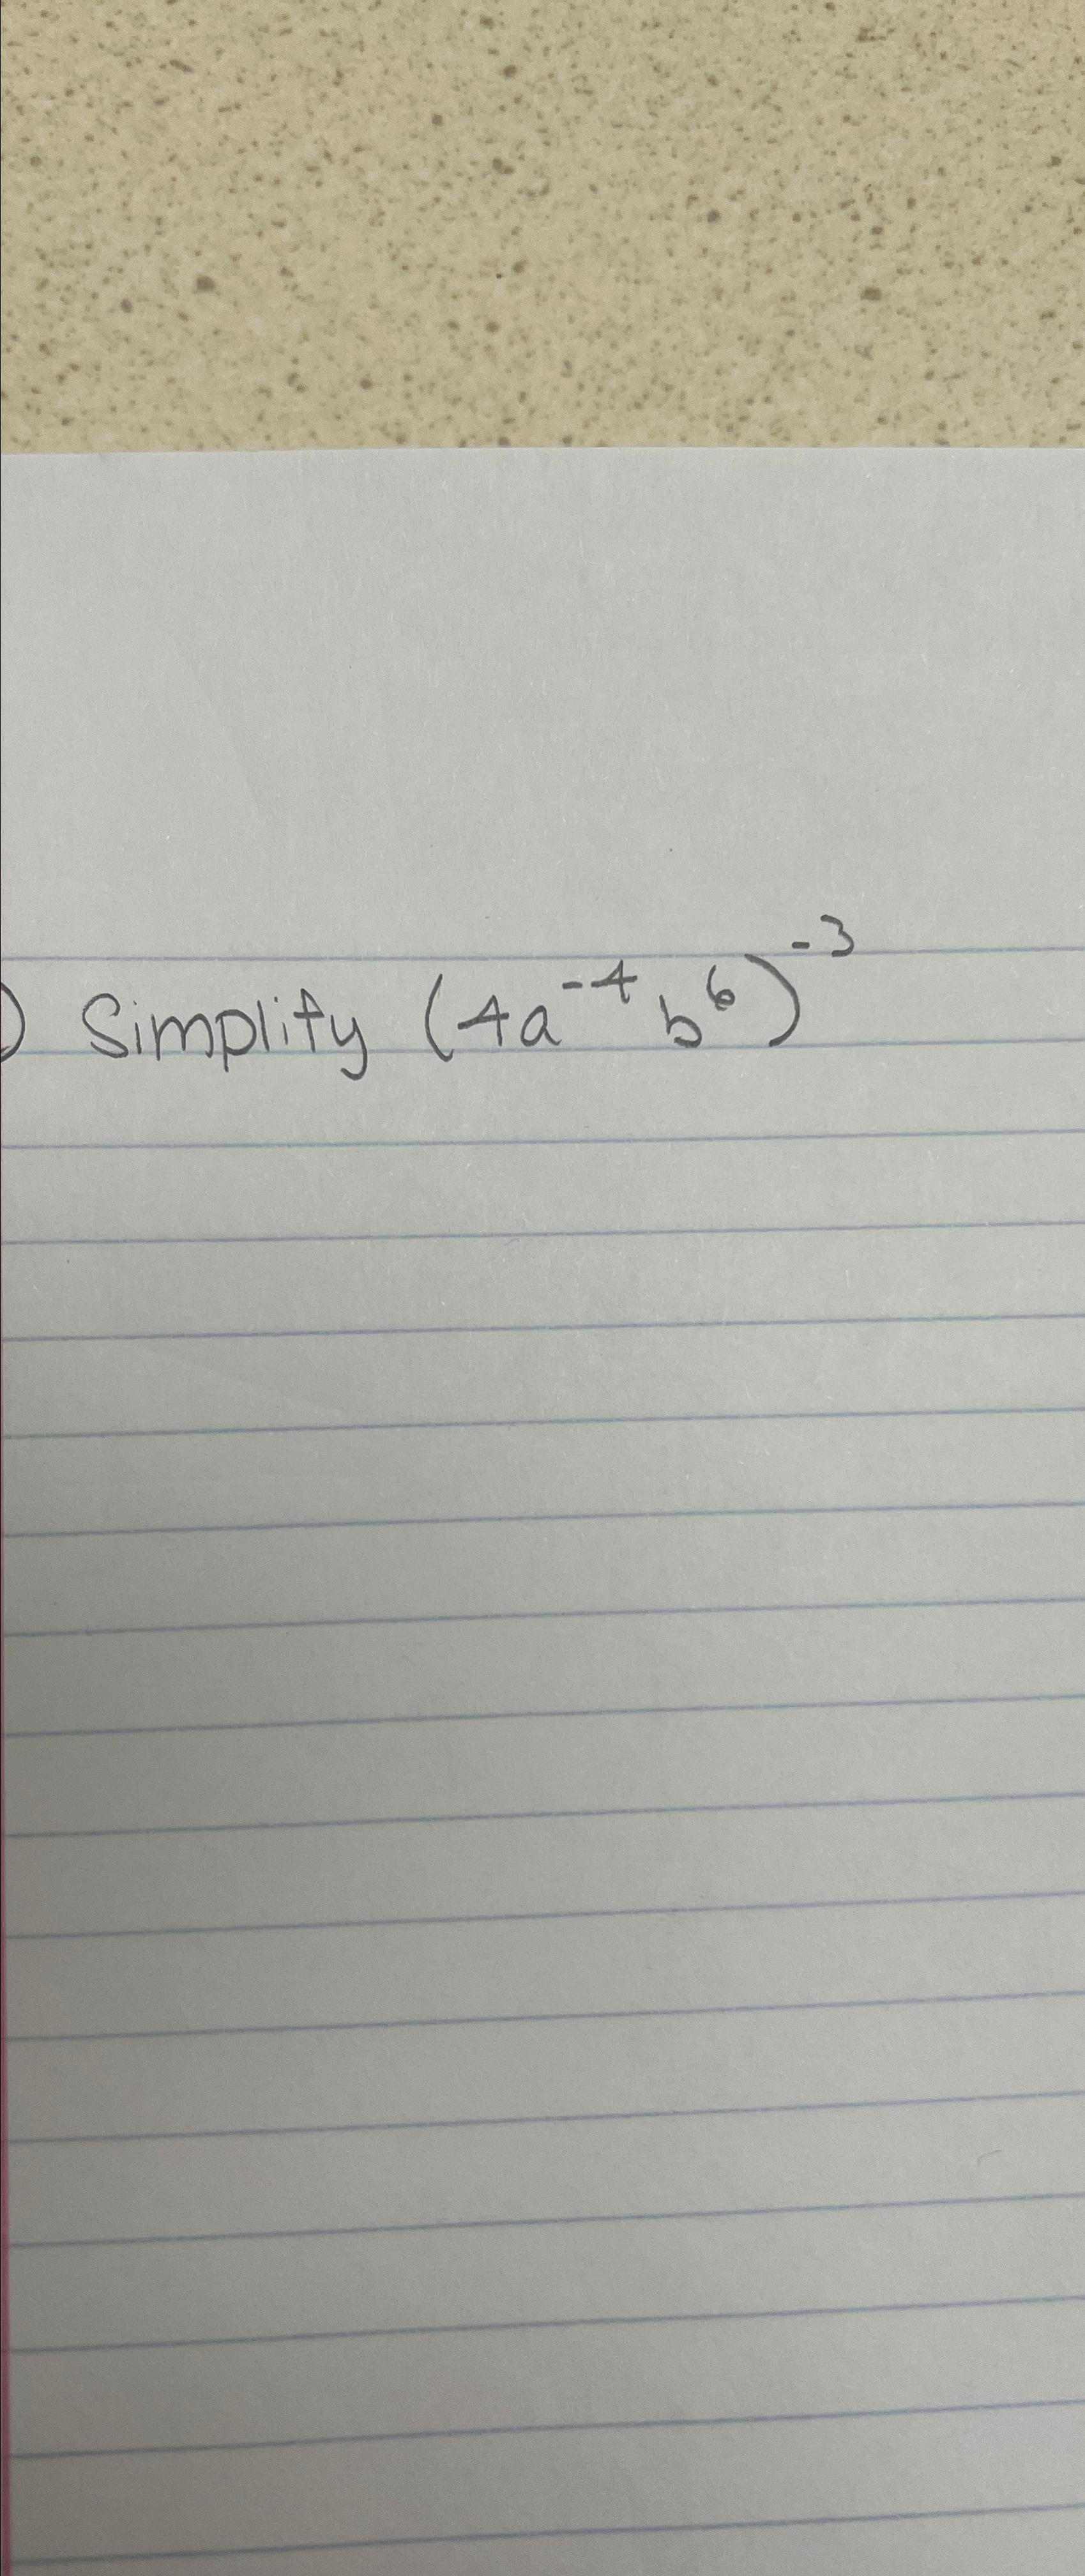 ) Simplify (4a⁻⁴b⁶)⁻³